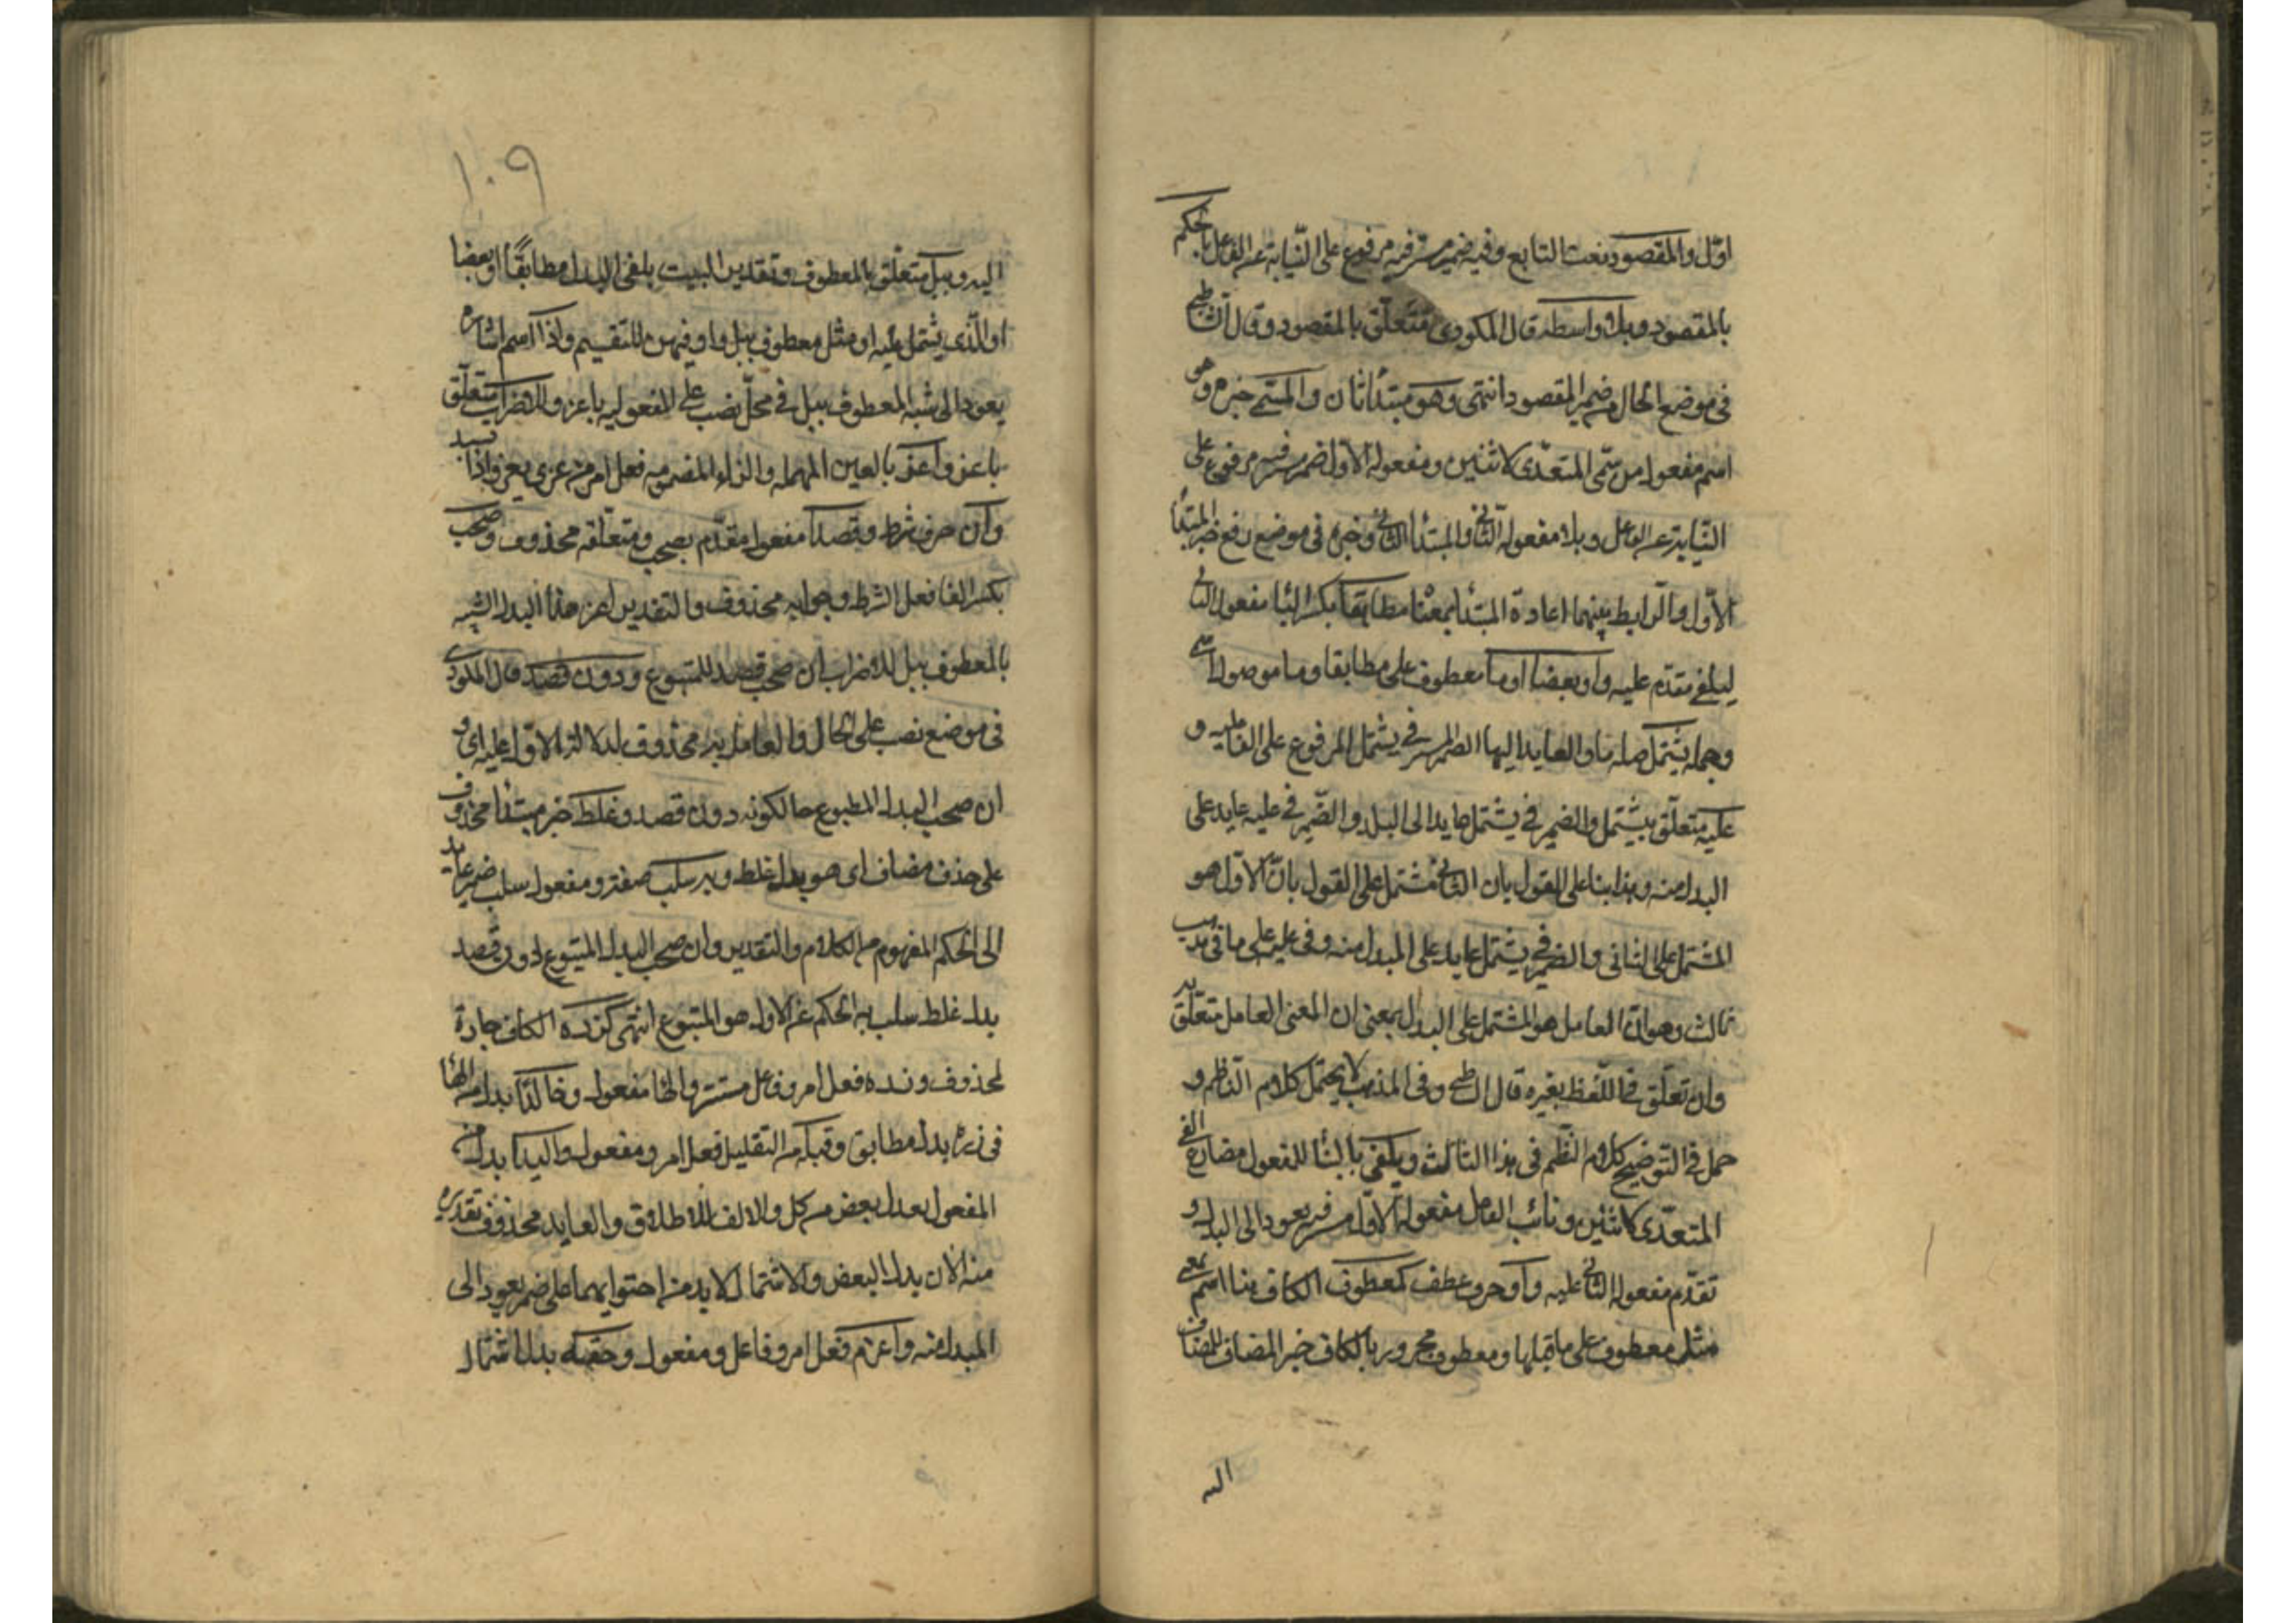 اول والمقصود نعت التابع وفيه ضمير مستتر فيه مرفوع على النيابة عن الفاعل بالحكم
بالمقصود وبلا واسطة قال المكودى متعلق بالمقصود وقال الشاطبى
فى موضع الحال من ضمير المقصود انتهى وهو مبتدا ثان والمسمى خبره وهو
اسم مفعول من سمى المتعدى لاثنين ومفعوله الاول ضمير مستتر فيه مرفوع على
النيابة عن الفاعل وبدلا مفعوله الثانى والمبتدا الثانى وخبره فى موضع رفع خبر المبتدا
الاول والرابط بينهما اعادة المبتدا بمعناه مطابقا بكسر البا مفعول الثانى
ليلفى مقدم عليه واو بعضا او ما معطوف على مطابقا وما موصول اسمى
وجملة يشتمل صلة ما والعايد اليها الضمير المستتر فى يشتمل المرفوع على الفاعلية و
عليه متعلق بيشتمل والضمير فى يشتمل عايد الى البدل والضمير فى عليه عايد على
البدل منه وهذا بنا على القول بان الثانى مشتمل على القول بان الاول هو
المشتمل على الثانى والضمير فى يشتمل عايد على المبدل منه وفى عليه على ما فى مذهب
ثالث وهو ان العامل هو المشتمل على البدل بمعنى ان المعنى العامل متعلق به
وان تعلق فى اللفظ بغيره قال الشاطبى وفى المذهب لا يحتمل كلام الناظم و
حمل فى التوضيح كلام النظم فى هذا الثالث ويلفى بالبنا للمفعول مضارع الفى
المتعدى لاثنين ونائب الفاعل مفعوله الاول مستتر فيه يعود الى البدل و
تقدم مفعوله الثانى عليه واو حرف عطف كمعطوف الكاف هنا اسم بمعنى
مثل معطوف على ما قبلها ومعطوف مجرور بالكاف خبر المضاف للمضاف
اليه
١٠٩
اليه وببل متعلق بالمعطوف وتقدير البيت يلفى البدل مطابقا او بعضا
او الذى يشتمل عليه او مثل معطوف ببل واو فيهن للتقسيم وذا اسم اشارة
يعود الى شبه المعطوف ببل فى محل نصب على المفعولية باعز وللاضراب متعلق
باعز واعز بالعين المهملة والزاء المضمومه فعل امر من عزى يعزو اذا نسب
وان حرف شرط وقصدا مفعول مقدم بصحب ومتعلقه محذوف وصحب
بكسر الفا فعل الشرط وجوابه محذوف والتقدير اعز هذا البدل الشبيه
بالمعطوف ببل للاضراب ان صحب قصد للمتبوع ودون قصد قال المكودى
فى موضع نصب على الحال والعامل فيه محذوف لدلالة الاول عليه اى و
ان صحب البدل المطبوع حالكونه دون قصد وغلط خبر مبتدا محذوف
على حذف مضاف اى هو بدل غلط وبه سلب صفته ومفعول سلب ضمير عايد
الى الحكم المفهوم من الكلام والتقدير وان صحب البدل المتبوع دون قصد
بدل غلط سلب به الحكم عن الاول هو المتبوع انتهى كزره الكاف جارة
لمحذوف وزره فعل امر وفاعل مستتر والها مفعول وخالدا بدل من الها
فى زره بدل مطابق وقبله من التقليل فعل امر ومفعول واليدا بدل من
المفعول بدل بعض من كل والالف للاطلاق والعايد محذوف تقديره
منه لان بدل البعض والاشتمال لابد من احتوايهما على ضمير يعود الى
المبدل منه واعرفه فعل امر وفاعل ومفعول وحقه بدل اشتمال